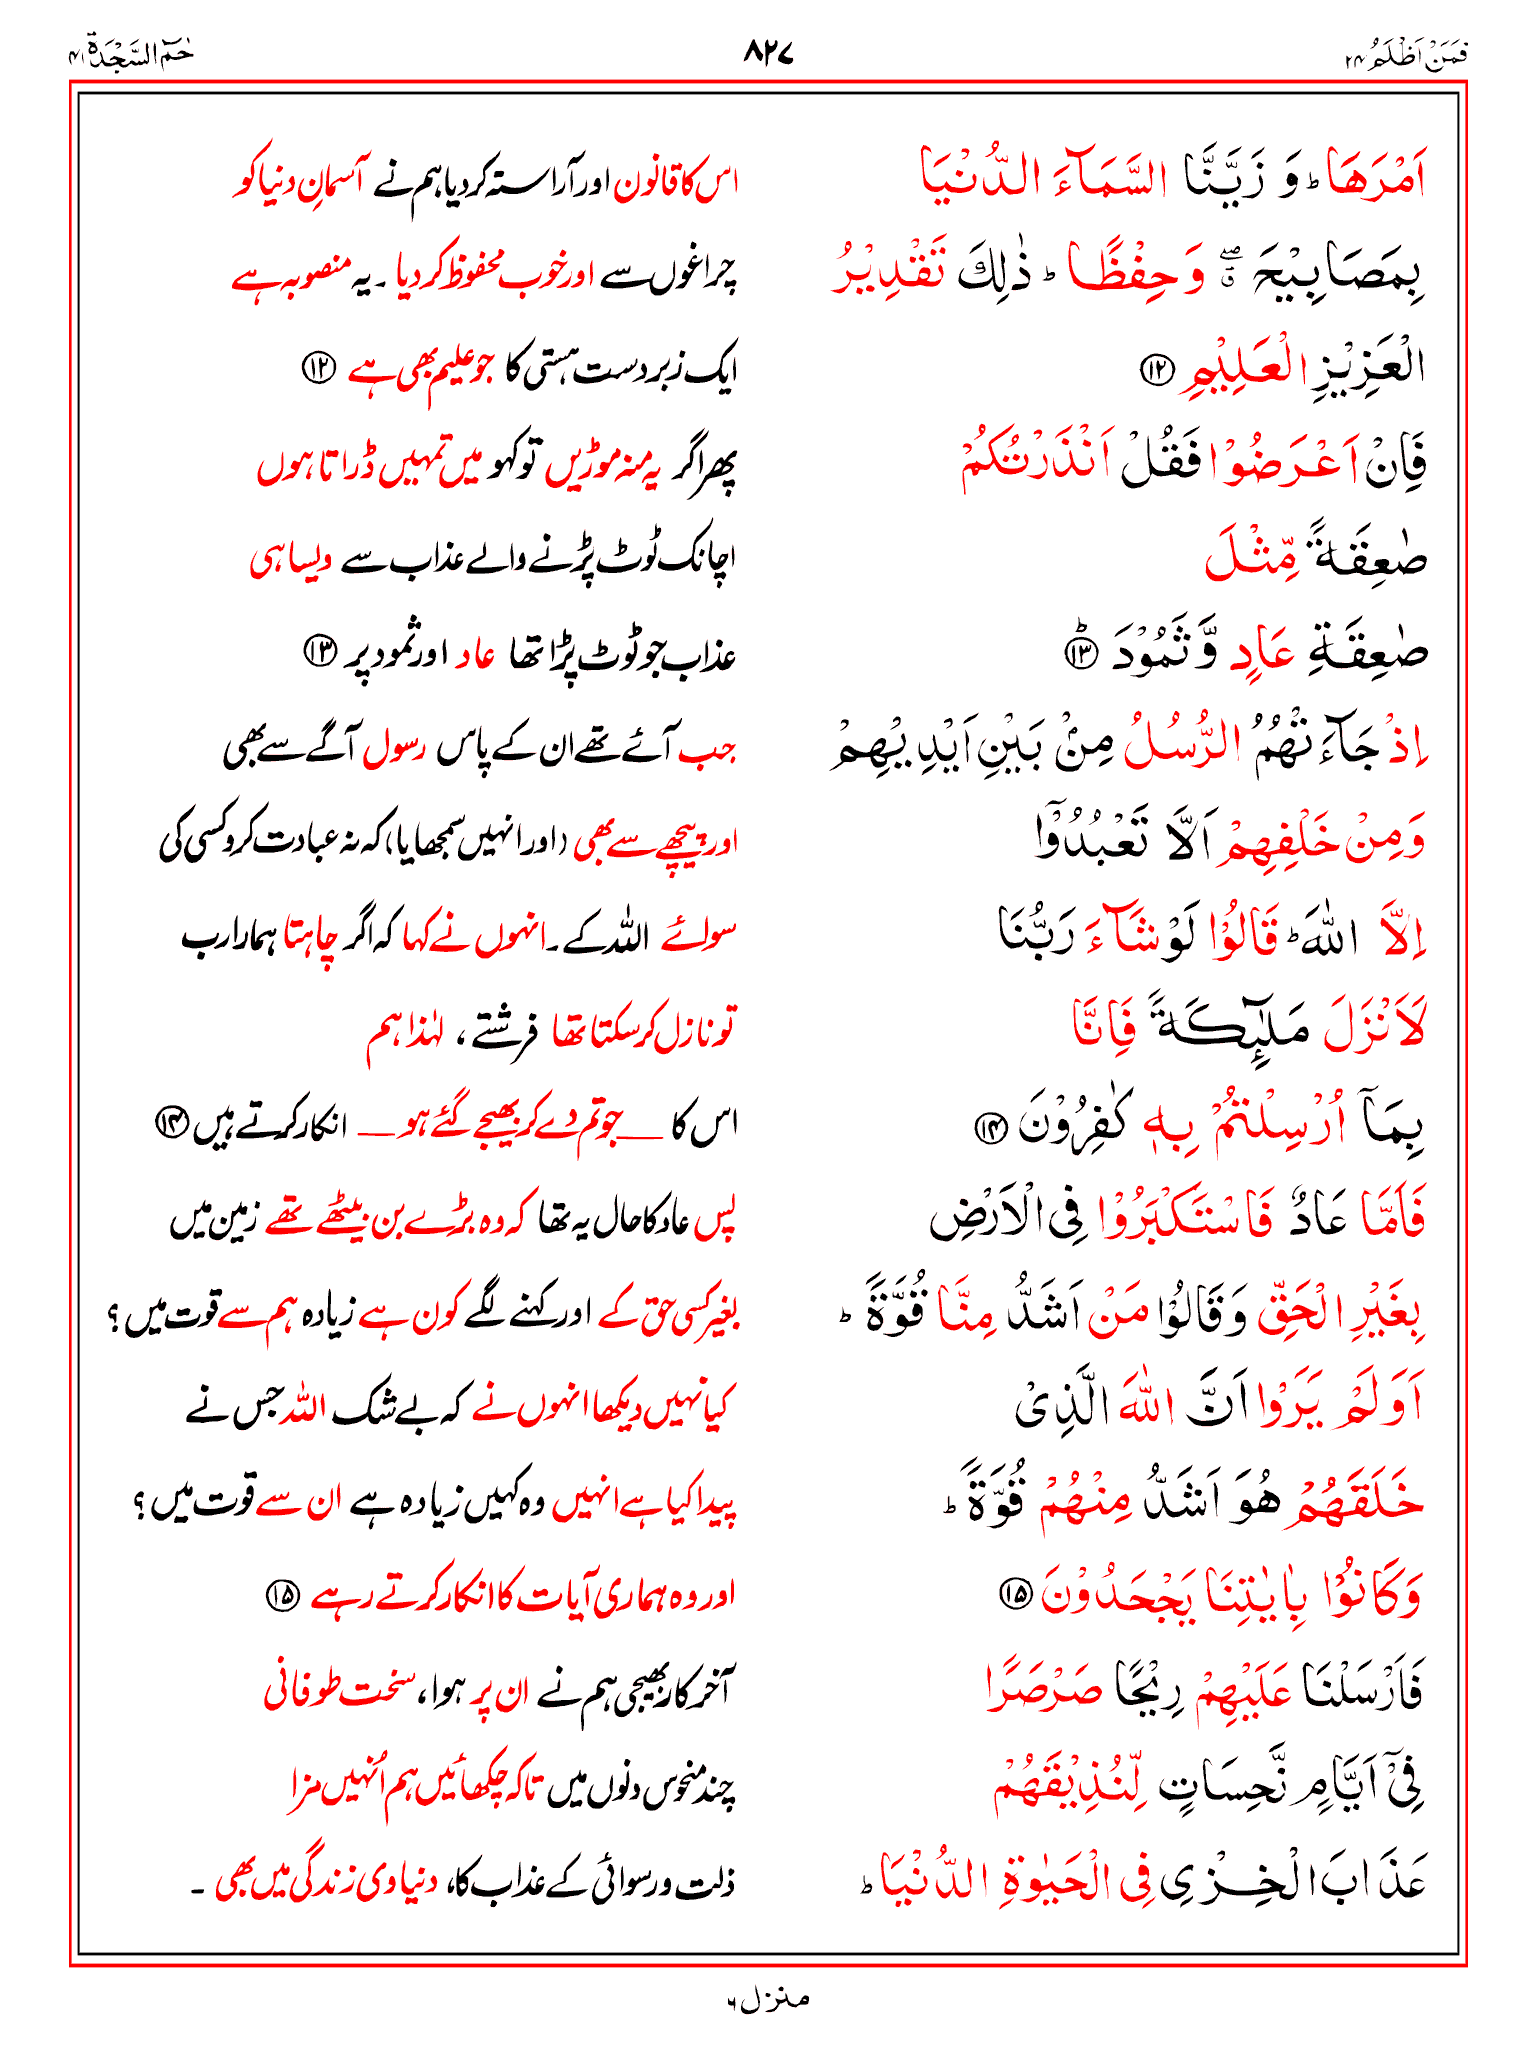 فَمَنْ اَظْلَمُ ۲۴ ۸۲۷ حٰمٓ السَّجْدَۃ ۴۱
اَمْرَهَا ؕ وَ زَيَّنَّا السَّمَآءَ الدُّنْيَا اس کا قانون اور آراستہ کر دیا ہم نے آسمانِ دنیا کو
بِمَصَابِيْحَ ۖۗ وَحِفْظًا ؕ ذٰلِكَ تَقْدِيْرُ چراغوں سے اور خوب محفوظ کر دیا ۔ یہ منصوبہ ہے
الْعَزِيْزِ الْعَلِيْمِ ⑫ ایک زبردست ہستی کا جو علیم بھی ہے ⑫
فَاِنْ اَعْرَضُوْا فَقُلْ اَنْذَرْتُكُمْ پھر اگر یہ منہ موڑیں تو کہو میں تمہیں ڈراتا ہوں
صٰعِقَةً مِّثْلَ اچانک ٹوٹ پڑنے والے عذاب سے ویسا ہی
صٰعِقَةِ عَادٍ وَّثَمُوْدَ ؕ⑬ عذاب جو ٹوٹ پڑا تھا عاد اور ثمود پر ⑬
اِذْ جَآءَتْهُمُ الرُّسُلُ مِنْۢ بَيْنِ اَيْدِيْهِمْ جب آئے تھے ان کے پاس رسول آگے سے بھی
وَمِنْ خَلْفِهِمْ اَلَّا تَعْبُدُوْۤا اور پیچھے سے بھی (اور انہیں سمجھایا) کہ نہ عبادت کرو کسی کی
اِلَّا اللّٰهَ ؕ قَالُوْا لَوْ شَآءَ رَبُّنَا سوائے اللہ کے ۔ انہوں نے کہا کہ اگر چاہتا ہمارا رب
لَاَنْزَلَ مَلٰٓئِكَةً فَاِنَّا تو نازل کر سکتا تھا فرشتے، لہٰذا ہم
بِمَاۤ اُرْسِلْتُمْ بِهٖ كٰفِرُوْنَ ⑭ اس کا __ جو تم دے کر بھیجے گئے ہو __ انکار کرتے ہیں ⑭
فَاَمَّا عَادٌ فَاسْتَكْبَرُوْا فِى الْاَرْضِ پس عاد کا حال یہ تھا کہ وہ بڑے بن بیٹھے تھے زمین میں
بِغَيْرِ الْحَقِّ وَقَالُوْا مَنْ اَشَدُّ مِنَّا قُوَّةً ؕ بغیر کسی حق کے اور کہنے لگے کون ہے زیادہ ہم سے قوت میں؟
اَوَلَمْ يَرَوْا اَنَّ اللّٰهَ الَّذِىْ کیا نہیں دیکھا انہوں نے کہ بے شک اللہ جس نے
خَلَقَهُمْ هُوَ اَشَدُّ مِنْهُمْ قُوَّةً ؕ پیدا کیا ہے انہیں وہ کہیں زیادہ ہے ان سے قوت میں؟
وَكَانُوْا بِاٰيٰتِنَا يَجْحَدُوْنَ ⑮ اور وہ ہماری آیات کا انکار کرتے رہے ⑮
فَاَرْسَلْنَا عَلَيْهِمْ رِيْحًا صَرْصَرًا آخر کار بھیجی ہم نے ان پر ہوا، سخت طوفانی
فِىْۤ اَيَّامٍ نَّحِسَاتٍ لِّنُذِيْقَهُمْ چند منحوس دنوں میں تاکہ چکھائیں ہم اُنہیں مزا
عَذَابَ الْخِزْىِ فِى الْحَيٰوةِ الدُّنْيَا ؕ ذلت و رسوائی کے عذاب کا، دنیاوی زندگی میں بھی ۔
منزل ۶